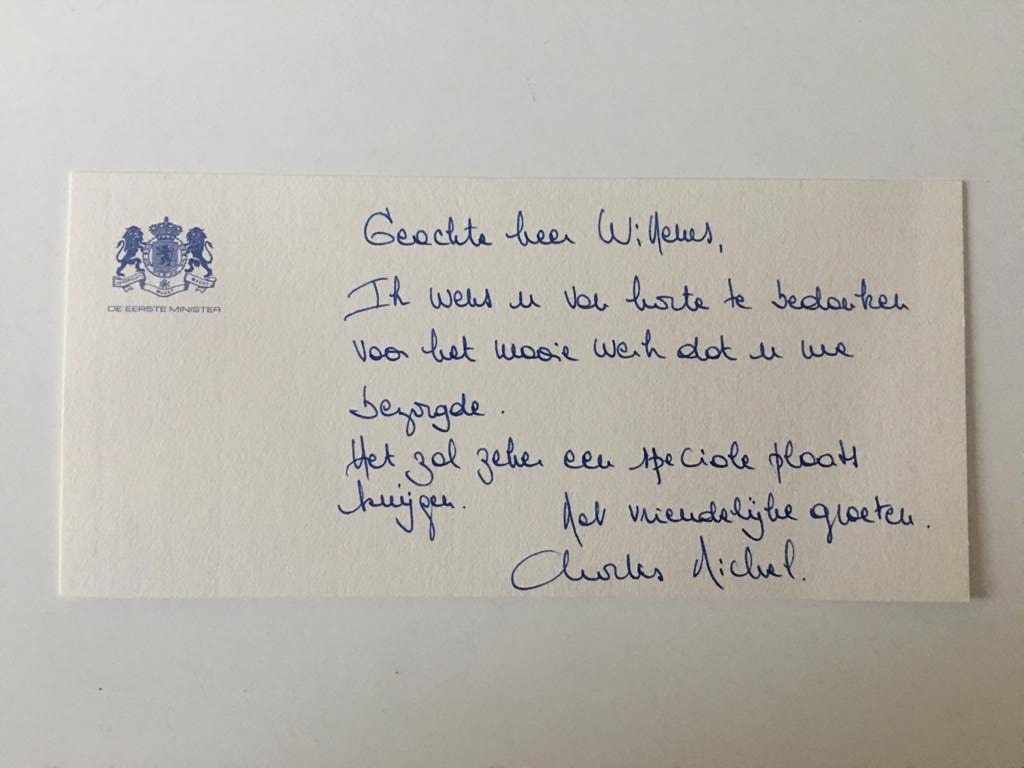 DE EERSTE MINISTER
Geachte heer Willems,
Ik wens u van harte te bedanken
voor het mooie werk dat u me
bezorgde.
Het zal zeker een speciale plaats
krijgen. Met vriendelijke groeten.
Charles Michel.